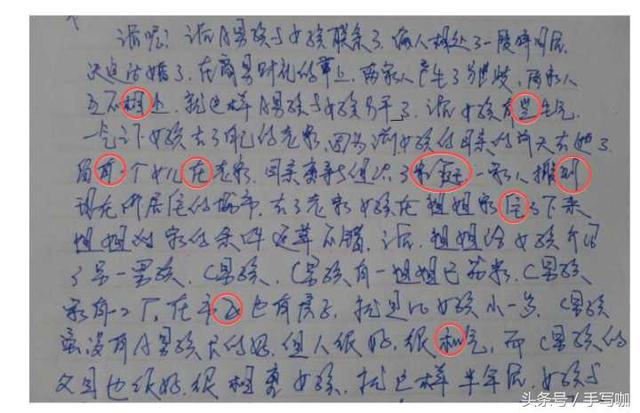 话呢？话A男孩与女孩联系了，俩人相处了一段时间后
决定结婚了，在商量财礼的事上，两家人产生了歧，两家人
互不相上，就这样A男孩与女孩分手了，话女孩有些生气
一气之下女孩去了自己的老家，因为女孩的母亲的前天去她了
留有一个女儿在老家，母亲离异与组了家庭一家人搬到
现在所居住的城市，去了老家女孩在姐姐家住了下来
姐姐对家的条件还算不错，话，姐姐给女孩介绍
了另一男孩，C男孩，C男孩有一姐姐已，C男孩
家有一个，在平也有房子，就是比女孩小一岁，C男孩
虽没有A男孩长的好，但人很好，很和气，而C男孩的
父母也很好，很相女孩，就这样半年后，女孩与
头条号／手写咖